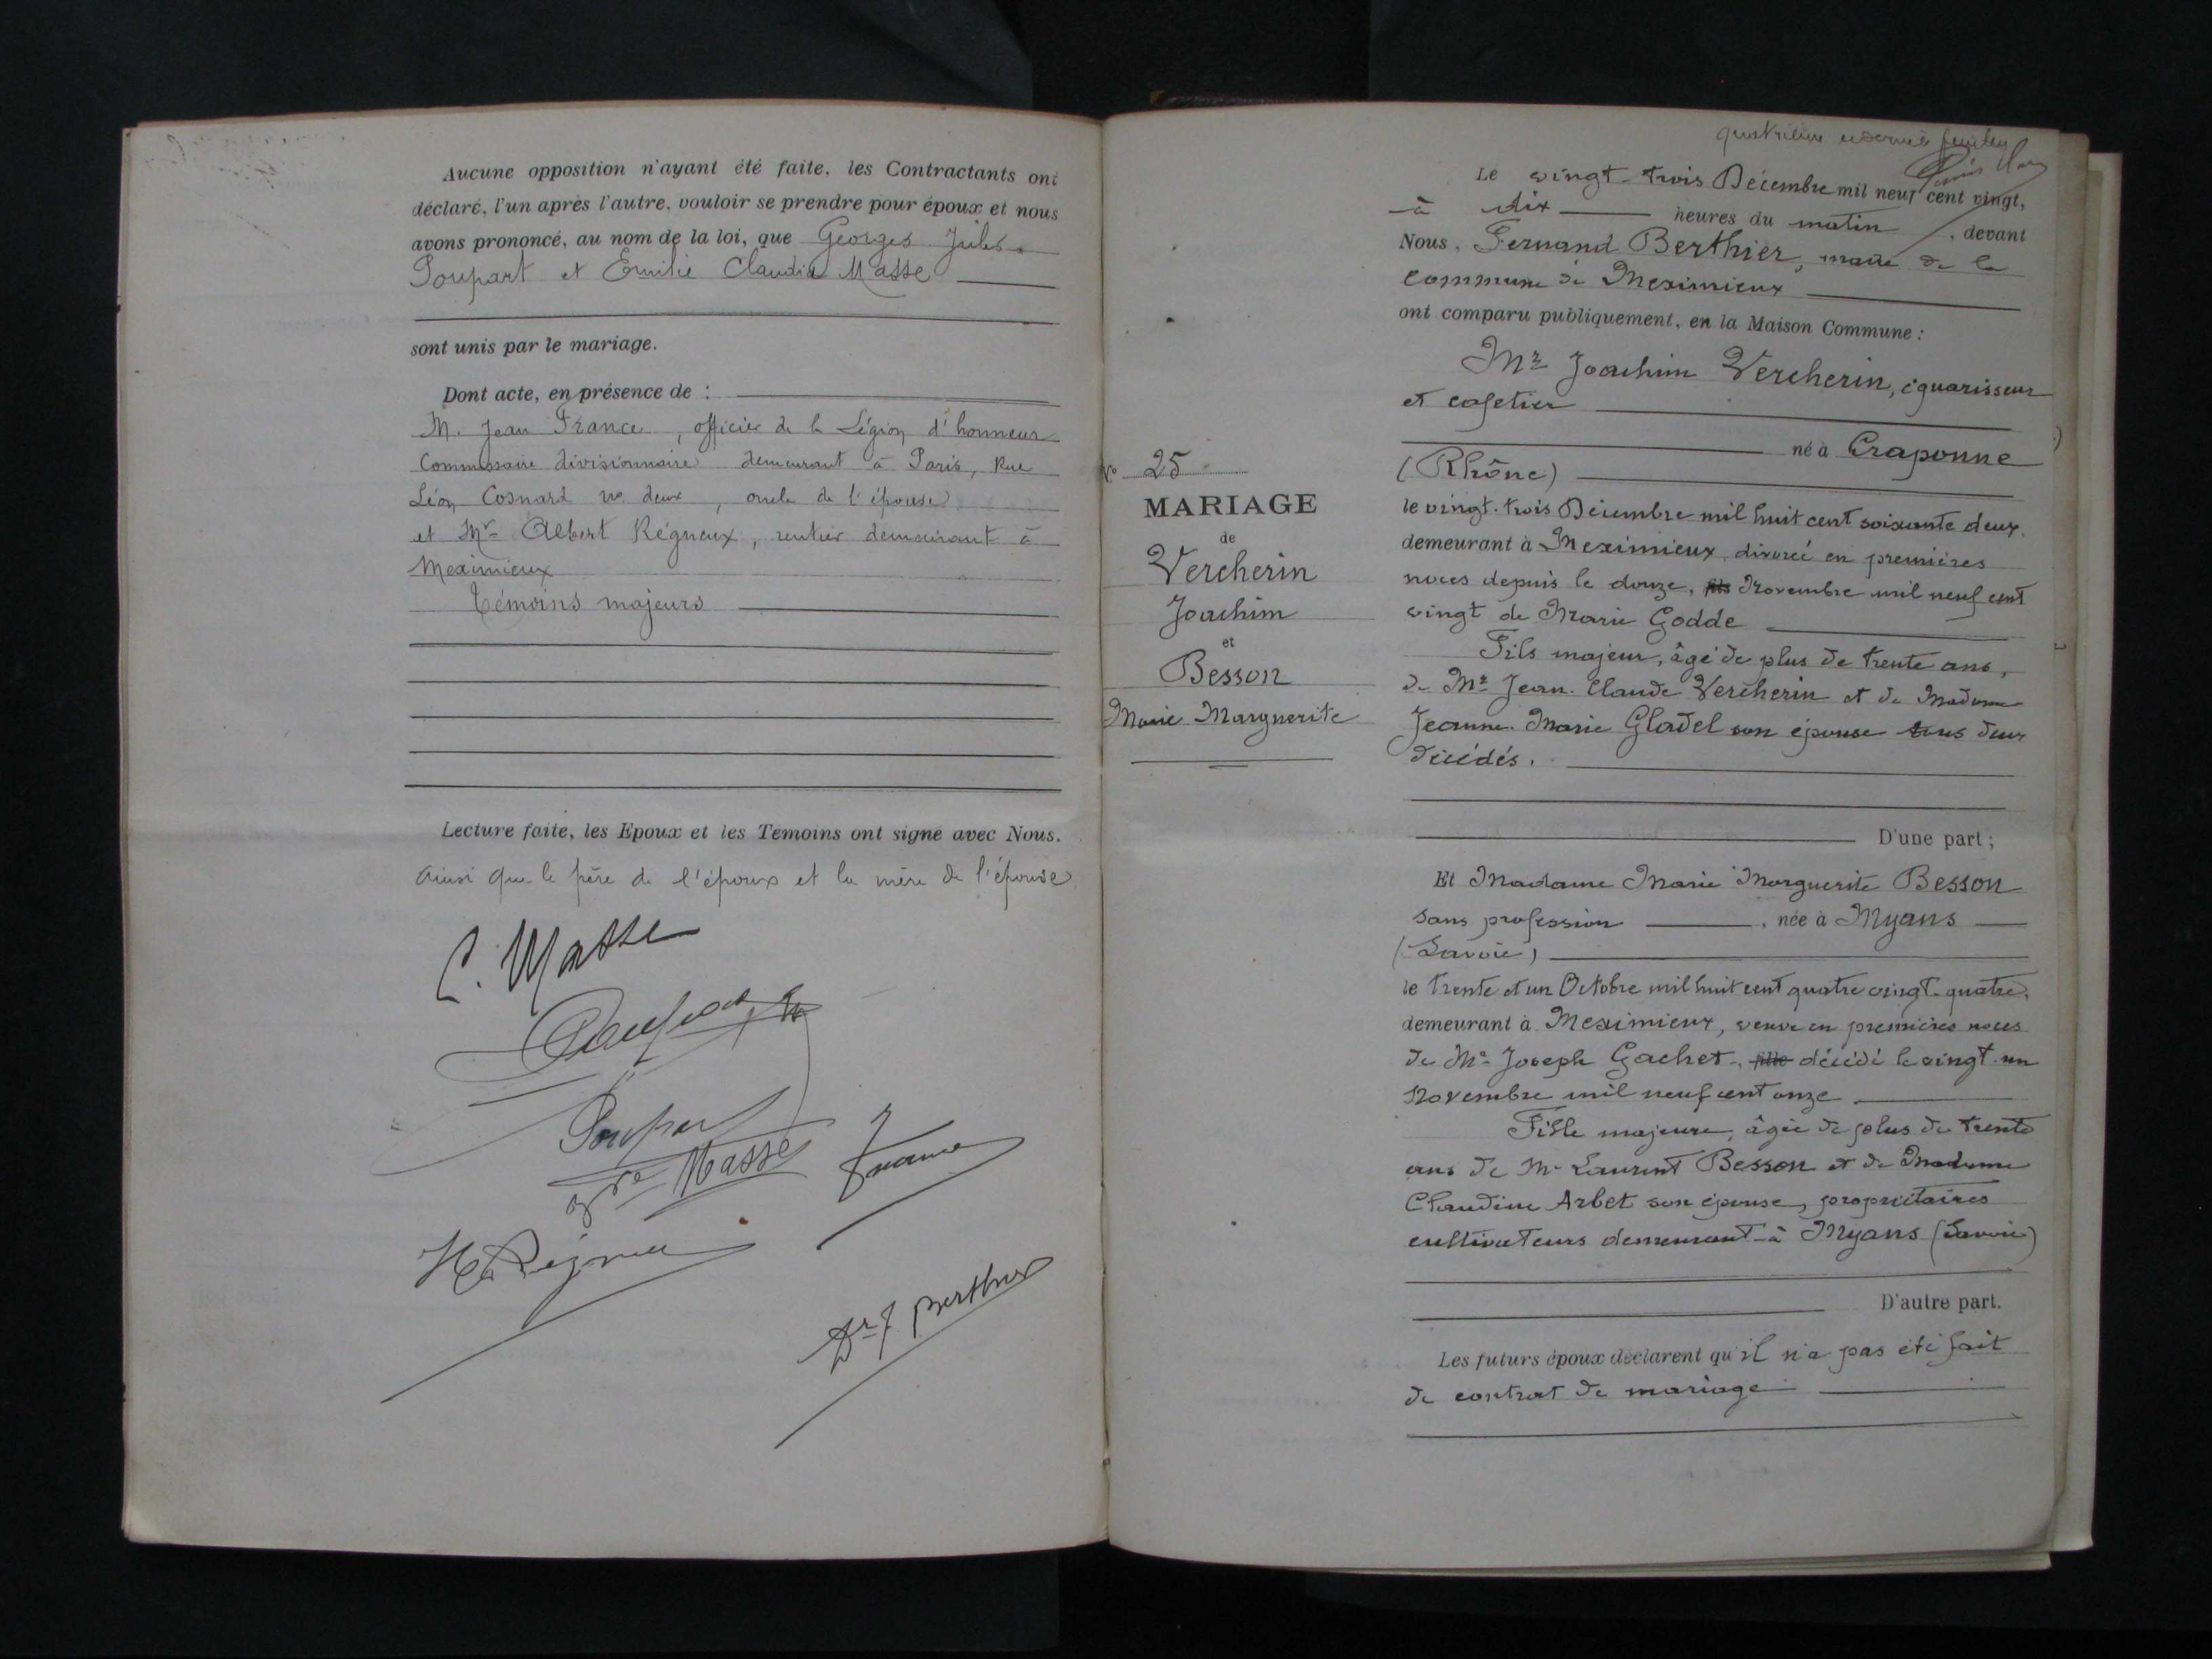 Aucune opposition n'ayant été faite, les Contractants ont
déclaré, l'un après l'autre, vouloir se prendre pour époux et nous
avons prononcé, au nom de la loi, que Georges Jules
Poupart et Emilie Claudia Masse
sont unis par le mariage.
Dont acte, en présence de :
M. Jean France, officier de la Légion d'honneur
Commissaire divisionnaire demeurant à Paris, Rue
Léon Cosnard no deux, oncle de l'épouse
et Mr Albert Régneux, rentier demeurant à
Meximieux
témoins majeurs
Lecture faite, les Epoux et les Témoins ont signé avec Nous.
Ainsi que le père de l'époux et la mère de l'épouse
C. Masse
Poupart
Masse
France
Dr F Berthier
quatrième et dernier feuillet
Le vingt-trois Décembre mil neuf cent vingt,
à dix heures du matin, devant
Nous, Fernand Berthier, maire de la
Commune de Meximieux
ont comparu publiquement, en la Maison Commune :
Mr Joachim Vercherin, équarisseur
et cafetier
né à Craponne
(Rhône)
le vingt-trois Décembre mil huit cent soixante deux,
demeurant à Meximieux, divorcé en premières
noces depuis le douze, fils Novembre mil neuf cent
vingt de Marie Godde
Fils majeur, âgé de plus de trente ans,
de Mr Jean-Claude Vercherin et de Madame
Jeanne-Marie Gladel son épouse tous deux
décédés.
D'une part ;
No 25
MARIAGE
de
Vercherin
Joachim
et
Besson
Marie Marguerite
Et Madame Marie Marguerite Besson
sans profession, née à Myans
(Savoie)
le trente et un Octobre mil huit cent quatre vingt-quatre,
demeurant à Meximieux, veuve en premières noces
de Mr Joseph Gachet, fille décédé le vingt-un
Novembre mil neuf cent onze
Fille majeure, âgée de plus de trente
ans de Mr Laurent Besson et de Madame
Claudine Arbet son épouse, propriétaires
cultivateurs demeurant à Myans (Savoie)
D'autre part.
Les futurs époux déclarent qu'il n'a pas été fait
de contrat de mariage